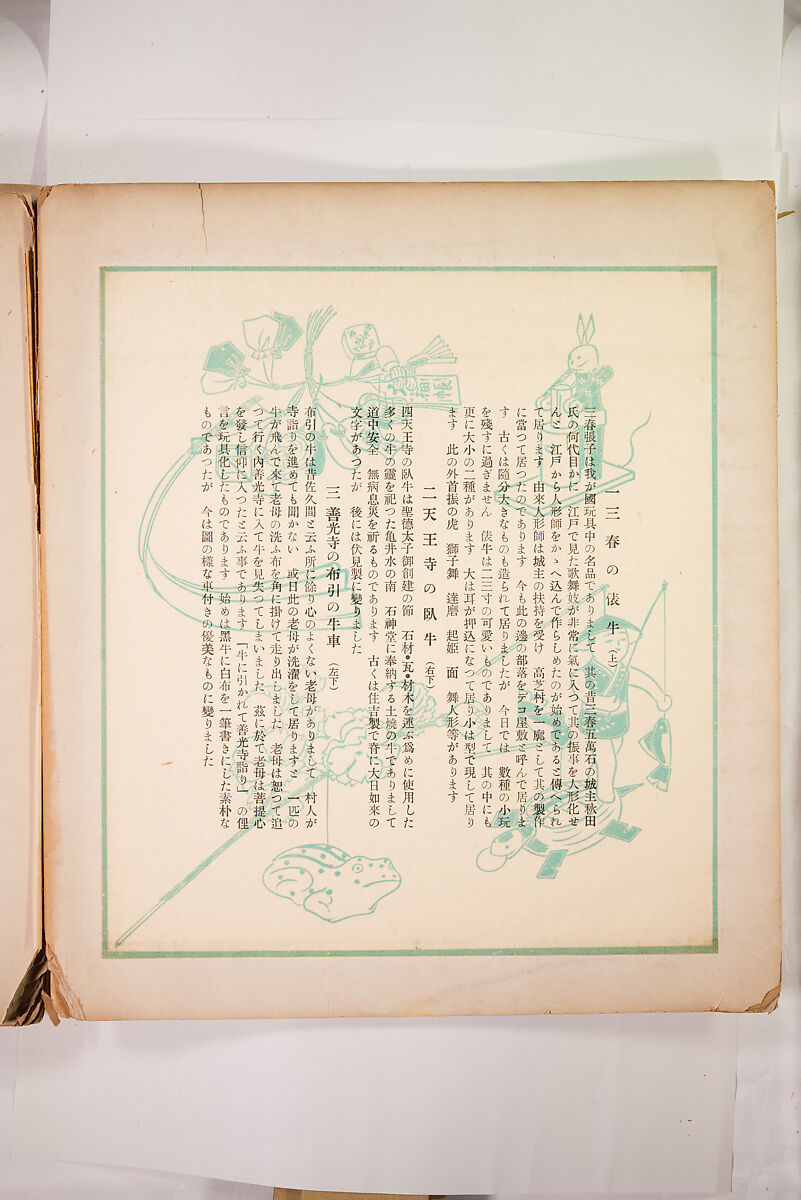 一三春の俵牛(上)
三春張子は我が國玩具中の名品でありまして 其の昔三春五萬石の城主秋田
氏の何代目かに 江戸で見た歌舞妓が非常に氣に入つて其の振事を人形化せ
んと 江戸から人形師をかゝへ込んで作らしめたのが始めであると傳へられ
て居ります 由來人形師は城主の扶持を受け 高芝村を一廓として其の製作
に當つて居つたのであります 今も此の邊の部落をデコ屋敷と呼んで居りま
す 古くは隨分大きなものも造られて居りましたが 今日では 數種の小玩
を殘すに過ぎません 俵牛は二三寸の可愛いものでありまして 其の中にも
更に大小の二種があります 大は耳が押込になつて居り小は型で現して居り
ます 此の外首振の虎 獅子舞 達磨 起姫 面 舞人形等があります
二天王寺の臥牛(右下)
四天王寺の臥牛は聖德太子御創建の節 石材•瓦•材木を運ぶ爲めに使用した
多くの牛の靈を祀つた亀井水の南 石神堂に奉納する土燒の牛でありまして
道中安全 無病息災を祈るものであります 古くは住吉製で脊に大日如來の
文字があつたが 後には伏見製に變りました
三善光寺の布引の牛車(左下)
布引の牛は昔佐久間と云ふ所に餘り心のよくない老母がありまして 村人が
寺詣りを進めても聞かない 或日此の老母が洗濯をして居りますと 一匹の
牛が飛んで來て老母の洗ふ布を角に掛けて走り出しました 老母は恕つて追
つて行く內善光寺に入て牛を見失つてしまいました 茲に於て老母は菩提心
を發し信仰に入つたと云ふ事であります 「牛に引かれて善光寺詣り」の俚
言を玩具化したものであります 始めは黑牛に白布を一筆書きにした素朴な
ものであつたが 今は圖の樣な車付きの優美なものに變りました
大福帳